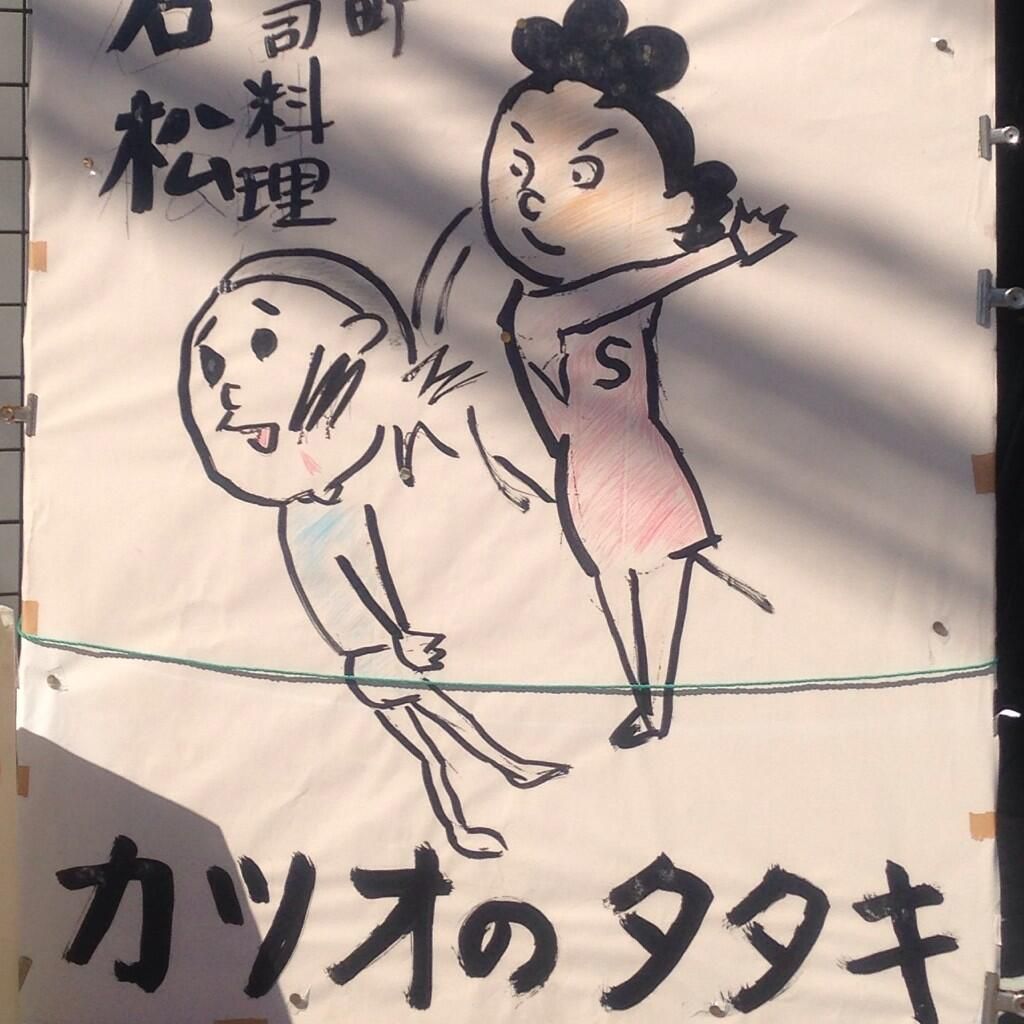 町
司料理
若松
S
カツオのタタキ